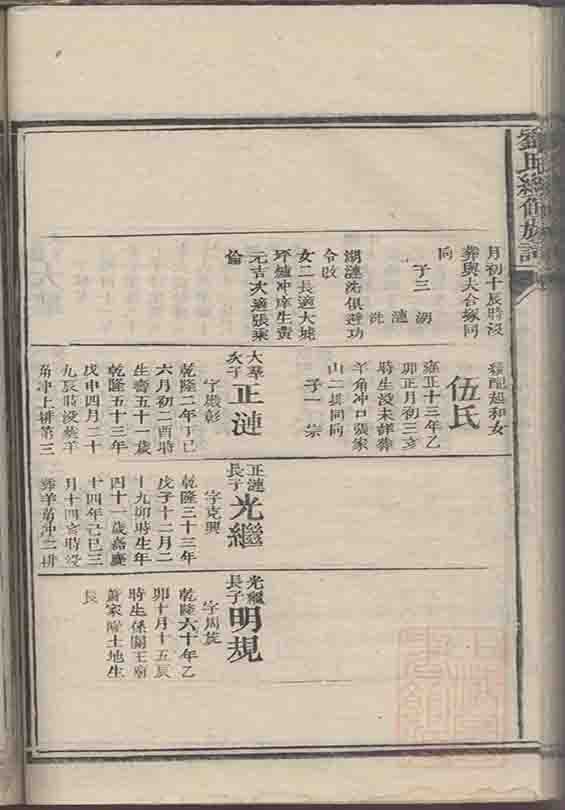 劉氏總修族譜
月初十辰時沒
葬與夫合塚同
同
子三 湖 漣 洸
湖漣洸俱遊功
令故
女二長適大坡
坪爐冲庠生黃
元吉次適張東
倫
伍氏
雍正十三年乙
卯正月初三亥
時生沒未詳葬
羊角冲口張家
山二排同同
子一 宗
大華
次子
正漣
字殿彰
乾隆二年丁巳
六月初二酉時
生壽五十一歲
乾隆五十三年
戊申四月二十
九辰時沒葬羊
角冲上排第三
正漣
長子
光繼
字克興
乾隆三十三年
戊子十二月二
十九卯時生年
四十一歲嘉慶
十四年己巳三
月十四亥時沒
葬羊角冲二排
光繼
長子
明規
乾隆六十年乙
卯十月十五辰
時生係關王廟
蕭家隆土地生
長